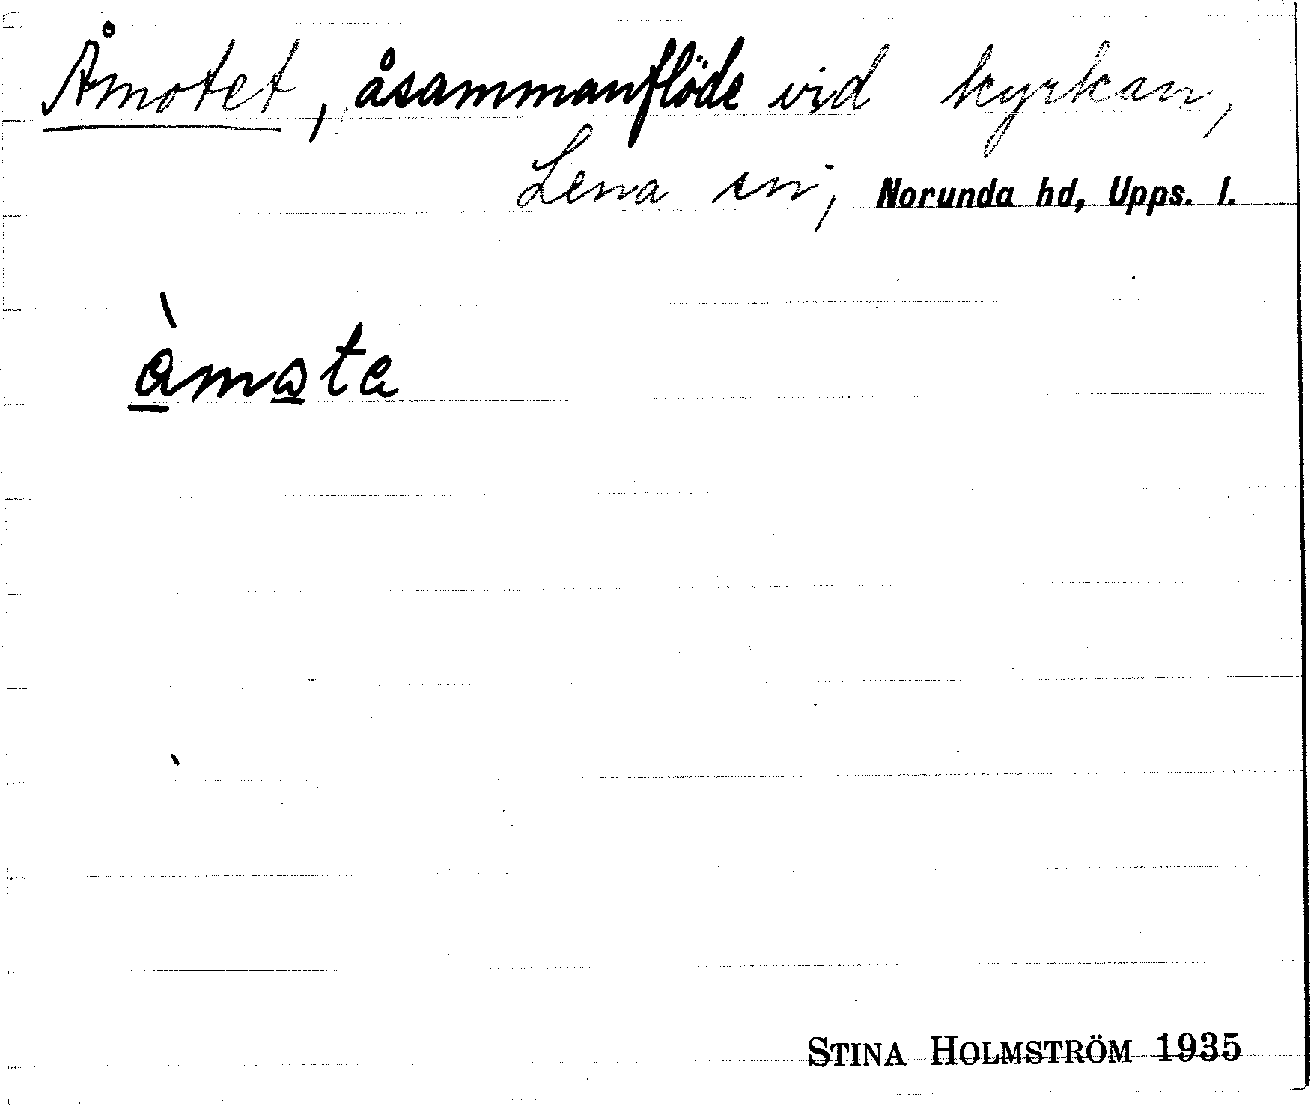 Åmotet, åsammanflöde vid kyrkan,
Lena sn, Norunda hd, Upps. l.
STINA HOLMSTRÖM 1935